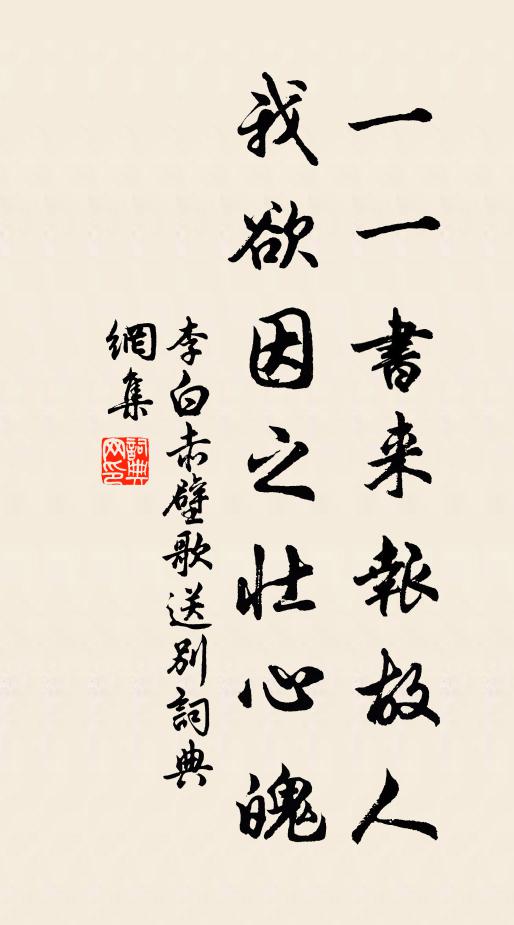 一一書来報故人
我欲因之壮心魄
李白赤壁歌送别詞典
網集
詞典網印